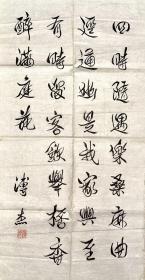 四時隨遇樂桑麻曲
逕通幽是我家興至
有時客飲舉齊
醉滿庭花
溥杰